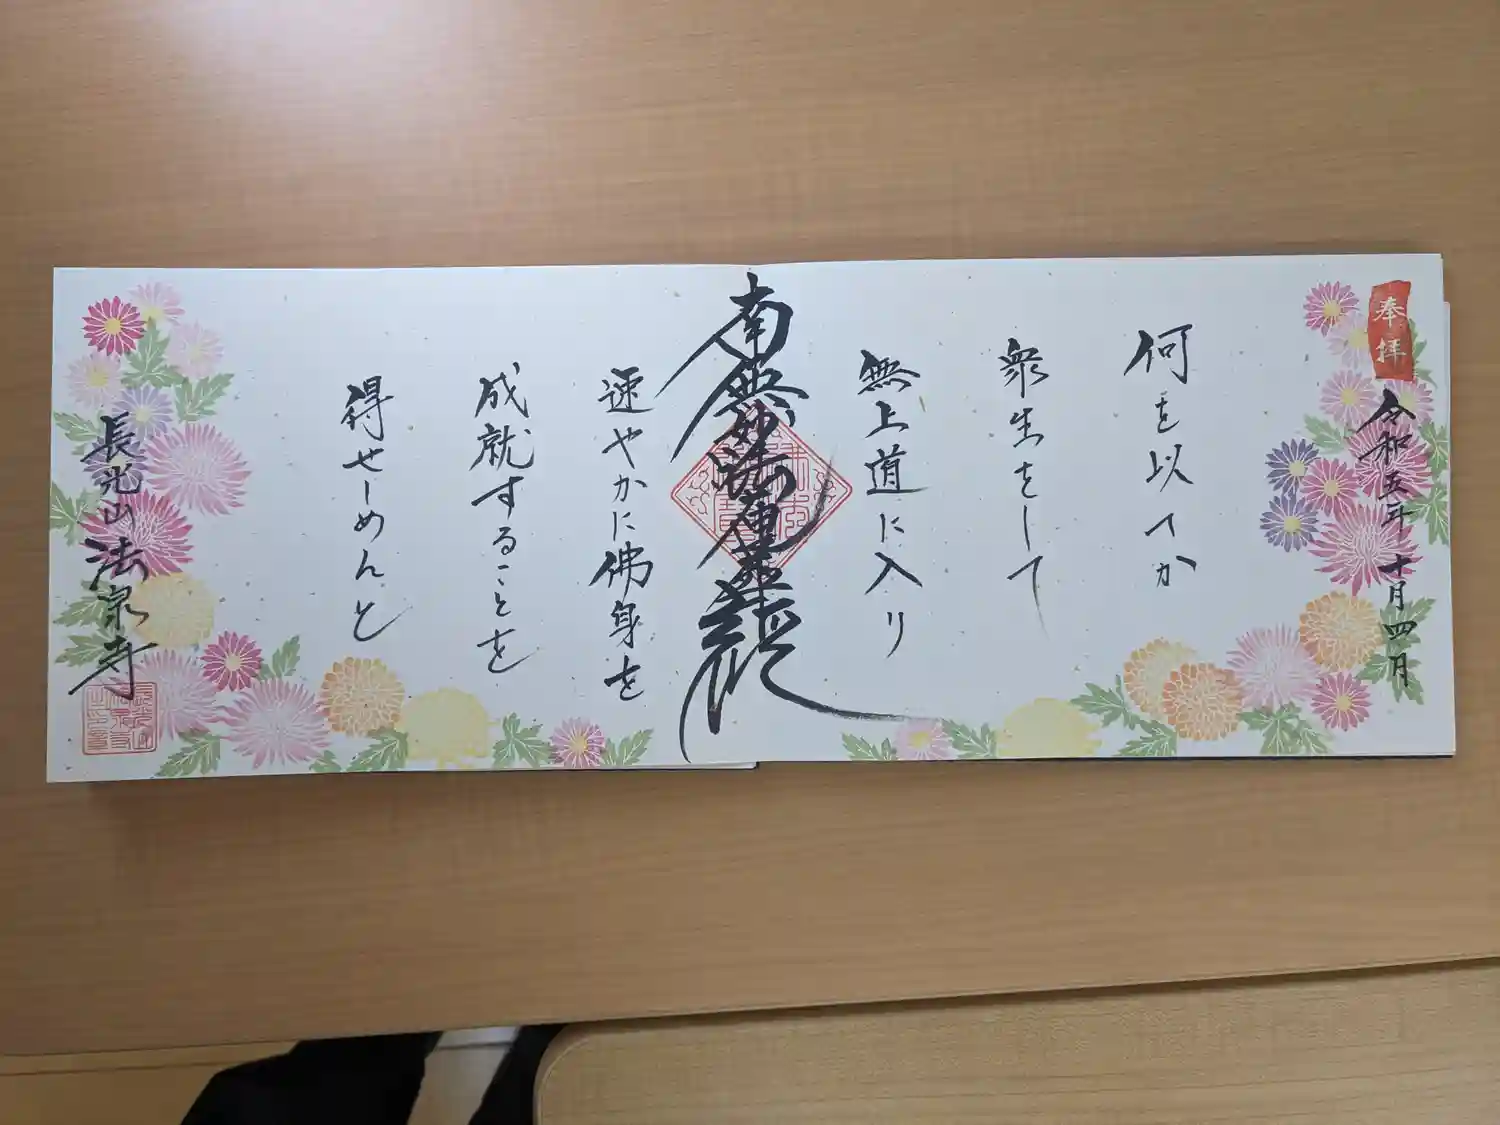 奉拝
令和五年十月四日
何を以てか
衆生をして
無上道に入り
南無妙法蓮華経
速やかに佛身を
成就することを
得せしめんと
長光山
法泉寺